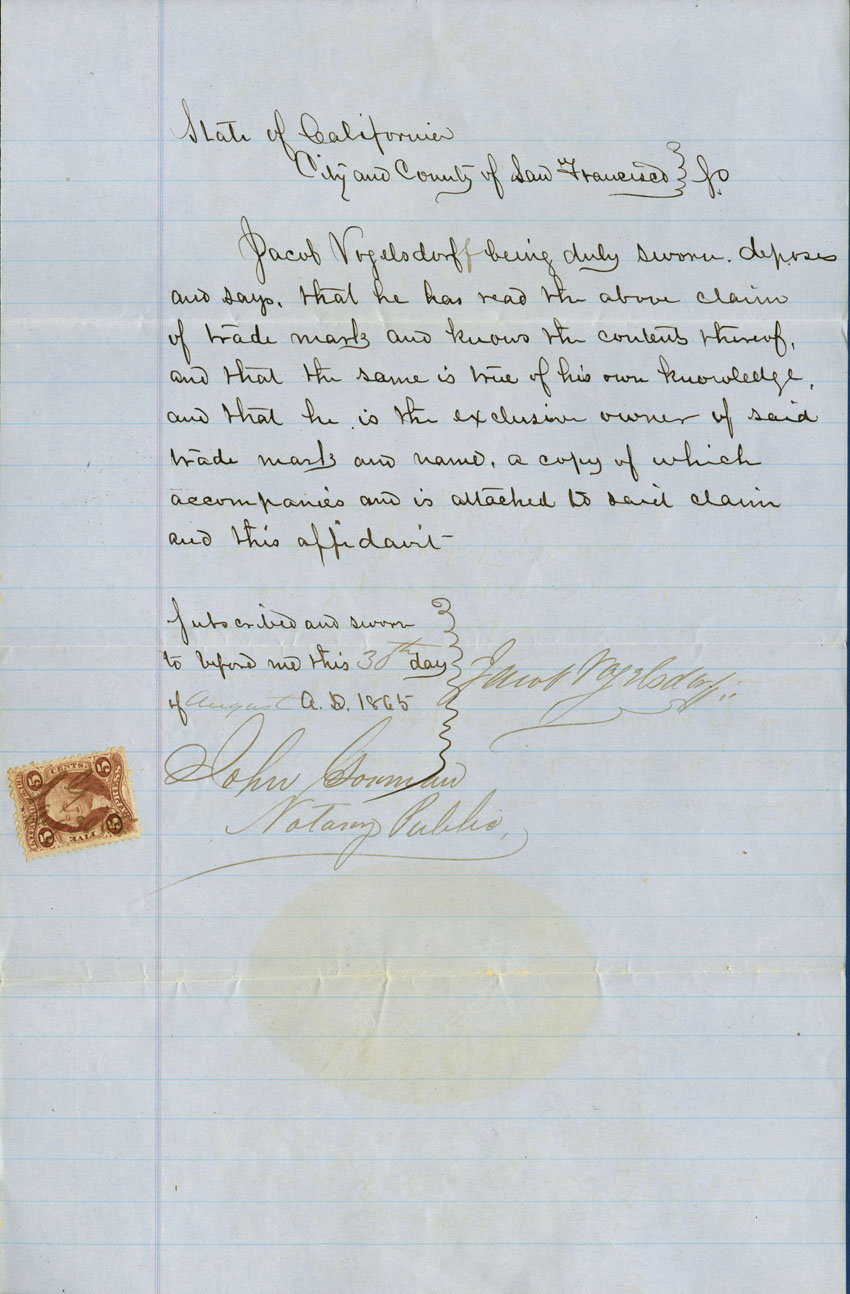 State of California
City and County of San Francisco } ss
Jacob Vogelsdorff being duly sworn. deposes
and says, that he has read the above claim
of trade mark and knows the contents thereof,
and that the same is true of his own knowledge,
and that he is the exclusive owner of said
trade mark and name, a copy of which
accompanies and is attached to said claim
and this affidavit
Subscribed and sworn
to before me this 30th day
of August A.D. 1865
Jacob Vogelsdorff
John Gorman
Notary Public,
5 CENTS. 5
FIVE
5 5